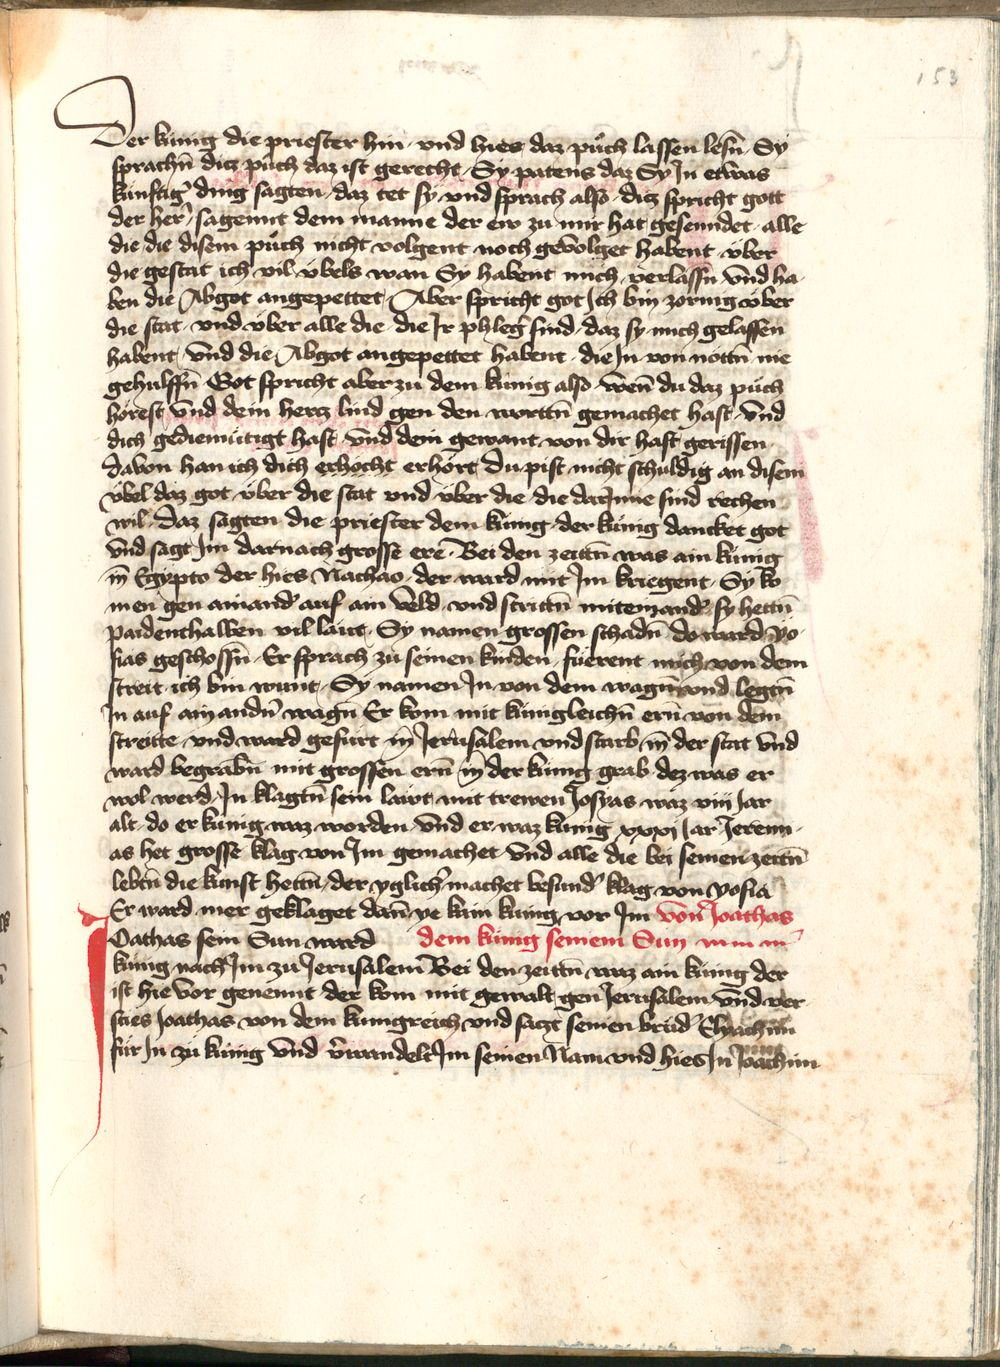 153
Der künig die priester hin vnd hies daz půch lassen lesn̄ Sy
sprachn̄ dicz půch daz ist gerecht Sy patens daz Sy In etwas
künftig̉ ding sagten daz tet sy vnd sprach also dicz spricht gott
der her̉ sagennt dem manne der ew zu mir hat gesenndet alle
die die disem půch nicht volgent noch gevolget habent über
die gestat ich vil übels wan Sy habent mich verlassn̄ vnd ha
ben die Abgot angepettet Aber spricht got Ich bin zornig über
die stat vnd über alle die die Ir phleg̉ sind daz sy mich gelassen
habent vnd die Abgot angepettet habent die In von nottn̄ nie
gehulffn̄ Got spricht aber zu dem künig also wen̄ du daz půch
hörest vnd dein hercz lind gen den worttn̄ gemachet hast vnd
dich gediemütigt hast vnd dein gewant von dir hast gerissen
davon han ich dich erhöcht erhört Du pist nicht schuldig an disem
übel daz got über die stat vnd über die die darInne sind rechen
wil daz sagten die priester dem künig der künig dancket got
vnd sagt Im darnach grosse ere Bei den zeittn̄ was ain künig
in̄ Egypto der hies Nachao der ward mit Im kriegent Sy ko
men gen ainand̉ auf ain veld vnd strittn̄ miteinand̉ sy hettn̄
paidenthalben vil läut Sy namen grossen schadn̄ do ward Yo
sias geschossn̄ Er sprach zu seinen kinden füerent mich von dem
streit ich bin wunt Sy namen In von dem wagn̄ vnd legtn̄
In auf ain andn̄ wagn̄ Er kom mit künigleichn̄ ern̄ von dem
streitte vnd ward gefürt in̄ Jerusalem vnd starb in̄ der stat vnd
ward begrabn̄ mit grossen ern̄ in̄ der künig grab dez was er
wol werd In klagtn̄ sein läwt mit trewen Josyas waz viii Jar
alt do er künig waz worden vnd er waz künig xxxi Jar Jeremi
as het grosse klag von Im gemachet vnd alle die bei seinen zeittn̄
lebtn̄ die kunst hettn̄ der yglich̉ machet besund̉ klag von Yosia
Er ward mer geklaget dan̄ ye kain künig vor Im von Joathas
Joathas sein Sun ward dem künig seinem Sun
künig nach Im zu Jerusalem Bei den zeittn̄ waz ain künig der
ist hie vor genennt der kom mit gewalt gen Jerusalem vnd ver
sties Joathas von dem künigreich vnd saczt seinen brüd̉ Elyachim
für In zu künig vnd v̉wandelt Im seinen Nam vnd hies In Joachim